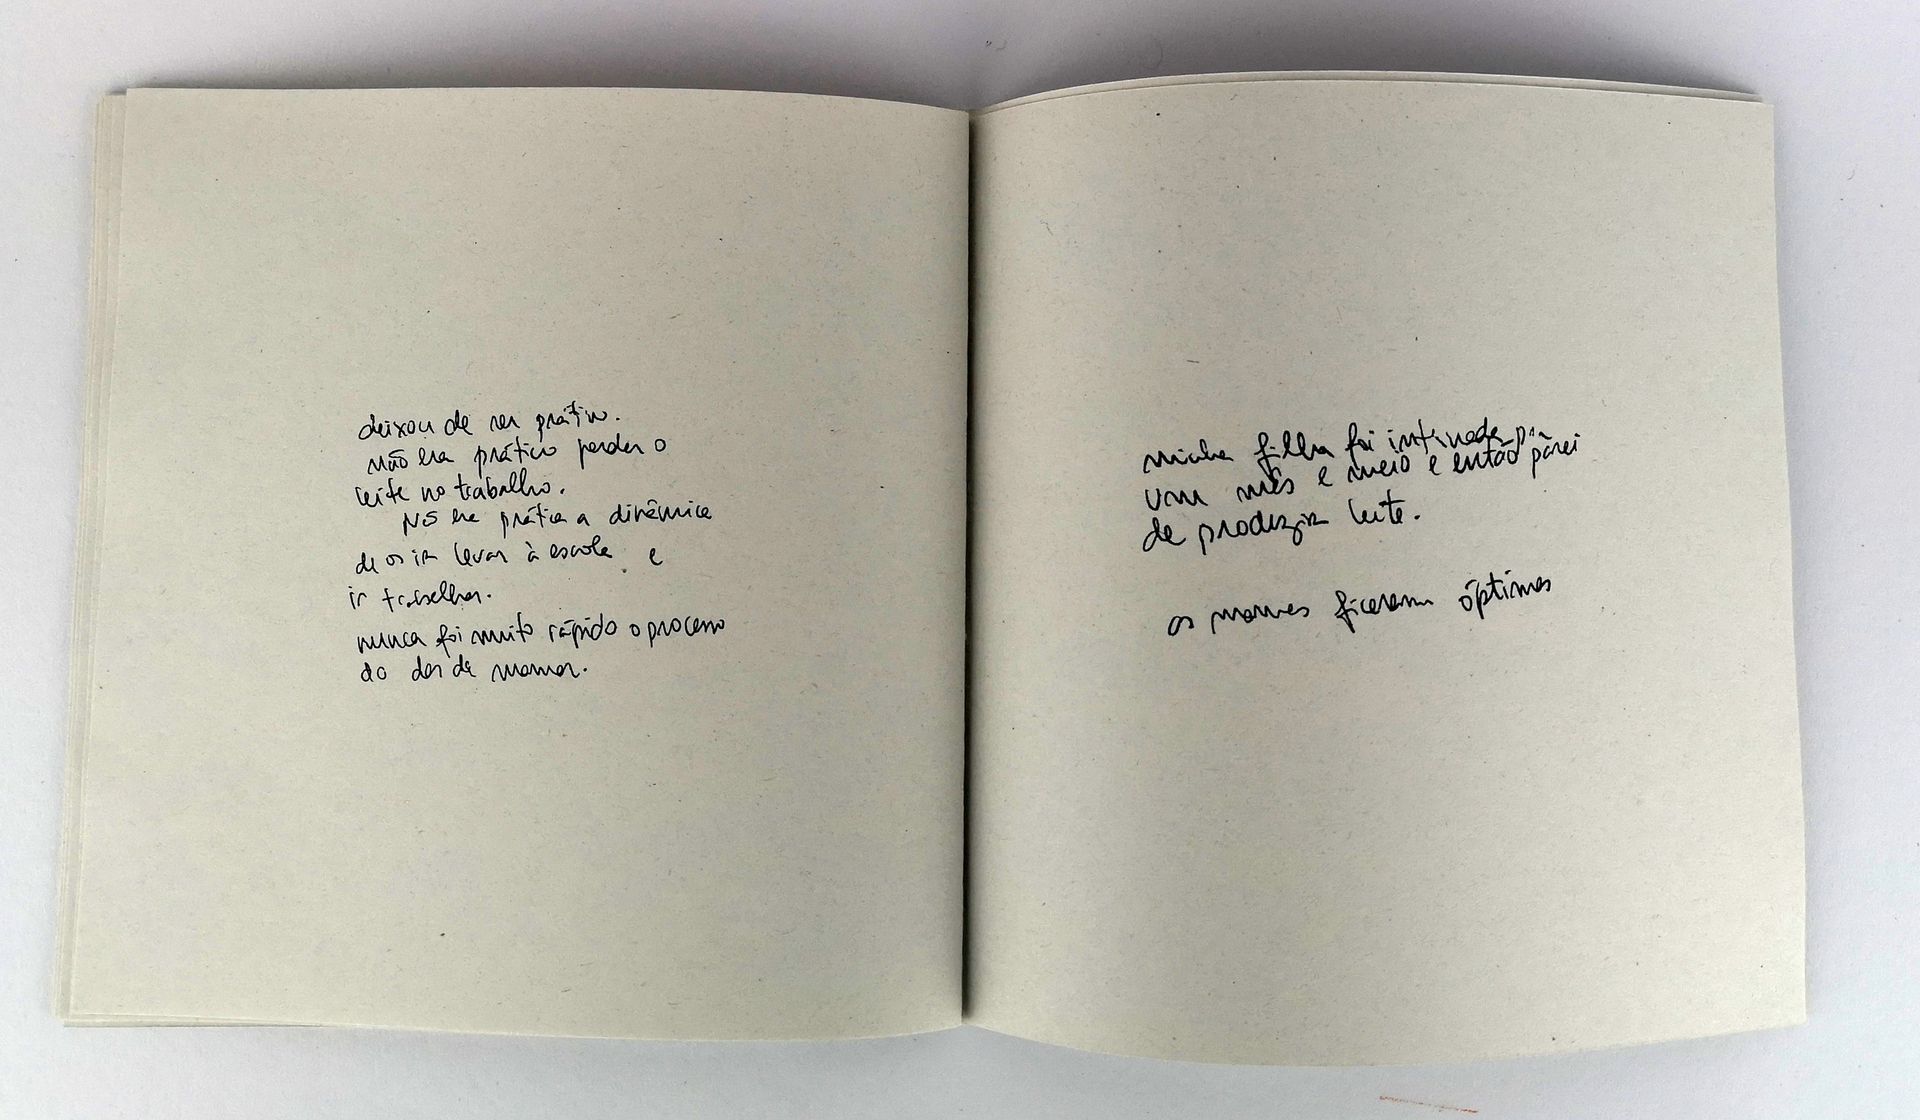 deixou de ser prático.
não era prático perder o
leite no trabalho.
Nõ era prática a dinâmica
de os ir levar à escola e
ir trabalhar.
nunca foi muito rápido o processo
do dar de mamar.
minha filha foi internada
um mês e meio e então parei
de produzir leite.
as mamas ficaram óptimas